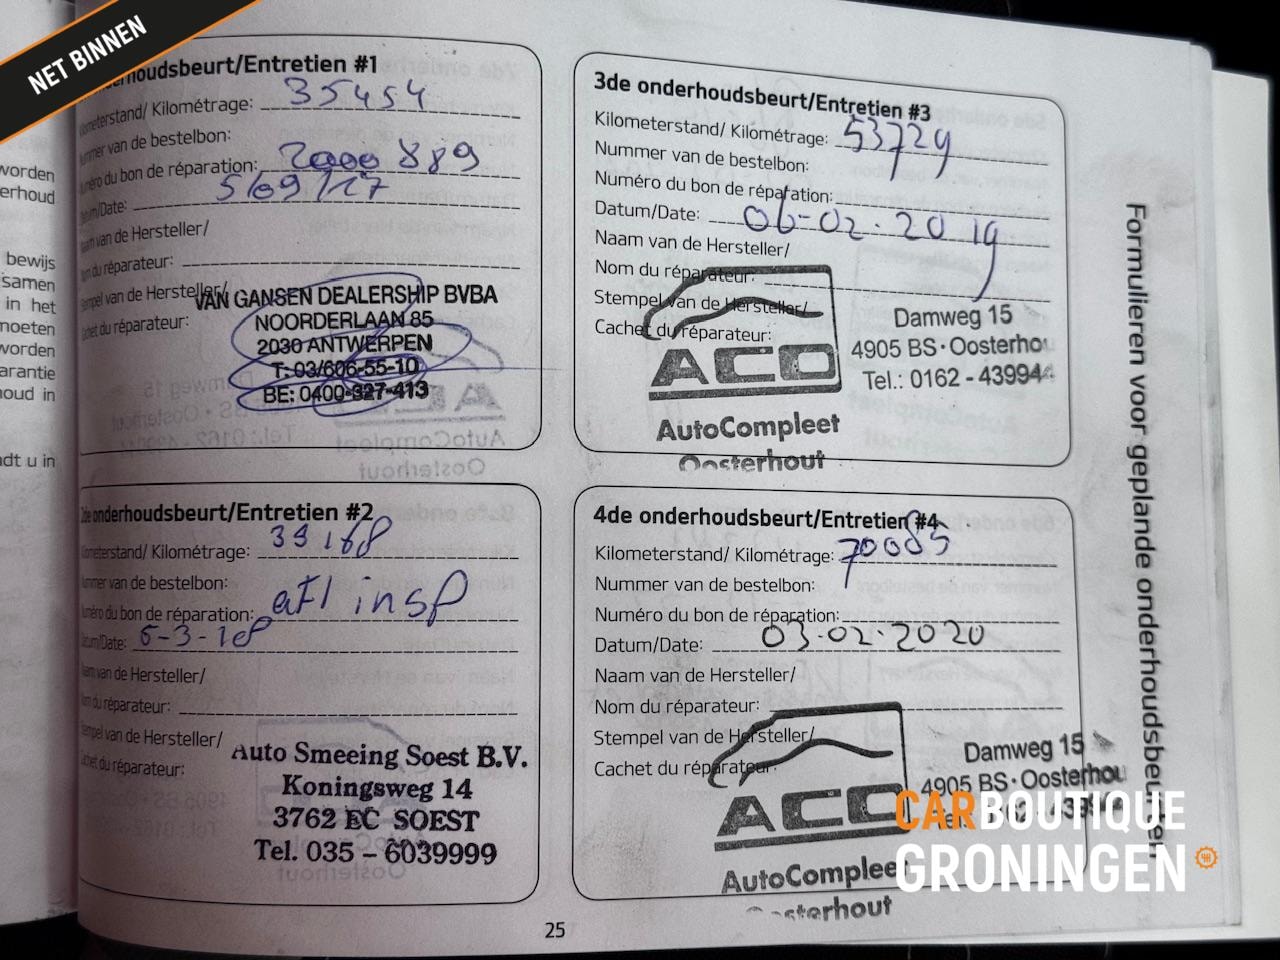 NET BINNEN
worden
erhoud
bewijs
samen
in het
moeten
worden
arantie
houd in
dt u in
houdsbeurt/Entretien #1
Kilometerstand/ Kilométrage: 35454
Nummer van de bestelbon:
Numéro du bon de réparation: 2000889
Datum/Date: 5/09/17
Naam van de Hersteller/
Nom du réparateur:
Stempel van de Hersteller/
Cachet du réparateur:
VAN GANSEN DEALERSHIP BVBA
NOORDERLAAN 85
2030 ANTWERPEN
T: 03/606-55-10
BE: 0400-327-413
2de onderhoudsbeurt/Entretien #2
Kilometerstand/ Kilométrage: 39168
Nummer van de bestelbon:
Numéro du bon de réparation: afl insp
Datum/Date: 6-3-18
Naam van de Hersteller/
Nom du réparateur:
Stempel van de Hersteller/
Cachet du réparateur:
Auto Smeeing Soest B.V.
Koningsweg 14
3762 EC SOEST
Tel. 035 – 6039999
3de onderhoudsbeurt/Entretien #3
Kilometerstand/ Kilométrage: 53729
Nummer van de bestelbon:
Numéro du bon de réparation:
Datum/Date: 06-02-2019
Naam van de Hersteller/
Nom du réparateur:
Stempel van de Hersteller/
Cachet du réparateur:
ACO
AutoCompleet
Oosterhout
Damweg 15
4905 BS · Oosterhou
Tel.: 0162 - 439944
4de onderhoudsbeurt/Entretien #4
Kilometerstand/ Kilométrage: 70085
Nummer van de bestelbon:
Numéro du bon de réparation:
Datum/Date: 03-02-2020
Naam van de Hersteller/
Nom du réparateur:
Stempel van de Hersteller/
Cachet du réparateur:
ACO
AutoCompleet
Oosterhout
Damweg 15
4905 BS · Oosterhou
Formulieren voor geplande onderhoudsbeurten
25
CARBOUTIQUE
GRONINGEN